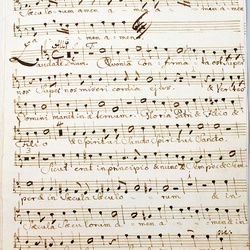 Saeculorum amen a men a men
men a men
Laudate Dum. Quoniam con firma ta est super
nos super nos miseri cordia ejus. & Veritas
Domini manet in aeternum. Gloria Patri & Filio &
Filio & Spiritui Sancto Spiritui Sancto.
Sicut erat in principio & nunc & semper & sem
per & in Saecula Saeculo rum & in
Saecula Saeculorum a men a